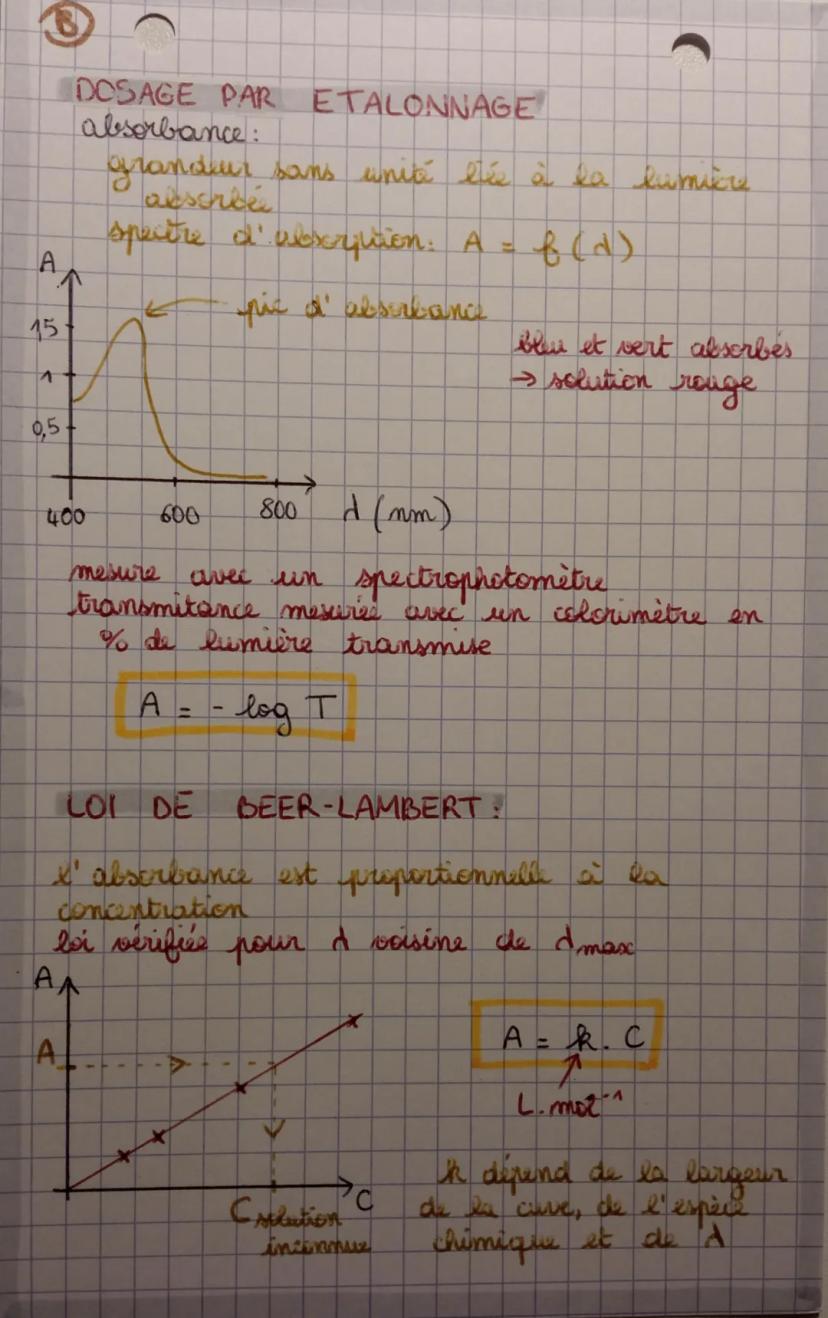 B
DOSAGE PAR ETALONNAGE
absorbance:
grandeur sans unité liée à la lumière
absorbée
spectre d'absorption: A = f(λ)
A
pic d'absorbance
15
bleu et vert absorbés
1
→ solution rouge
0,5
400 600 800 λ (nm)
mesure avec un spectrophotomètre
transmitance mesurée avec un colorimètre en
% de lumière transmise
A = - log T
LOI DE BEER-LAMBERT:
l'absorbance est proportionnelle à la
concentration
loi vérifiée pour λ voisine de λmax
A
A = k. C
A
L.mol⁻¹
C
C solution
inconnue
k dépend de la largeur
de la cuve, de l'espèce
chimique et de λ